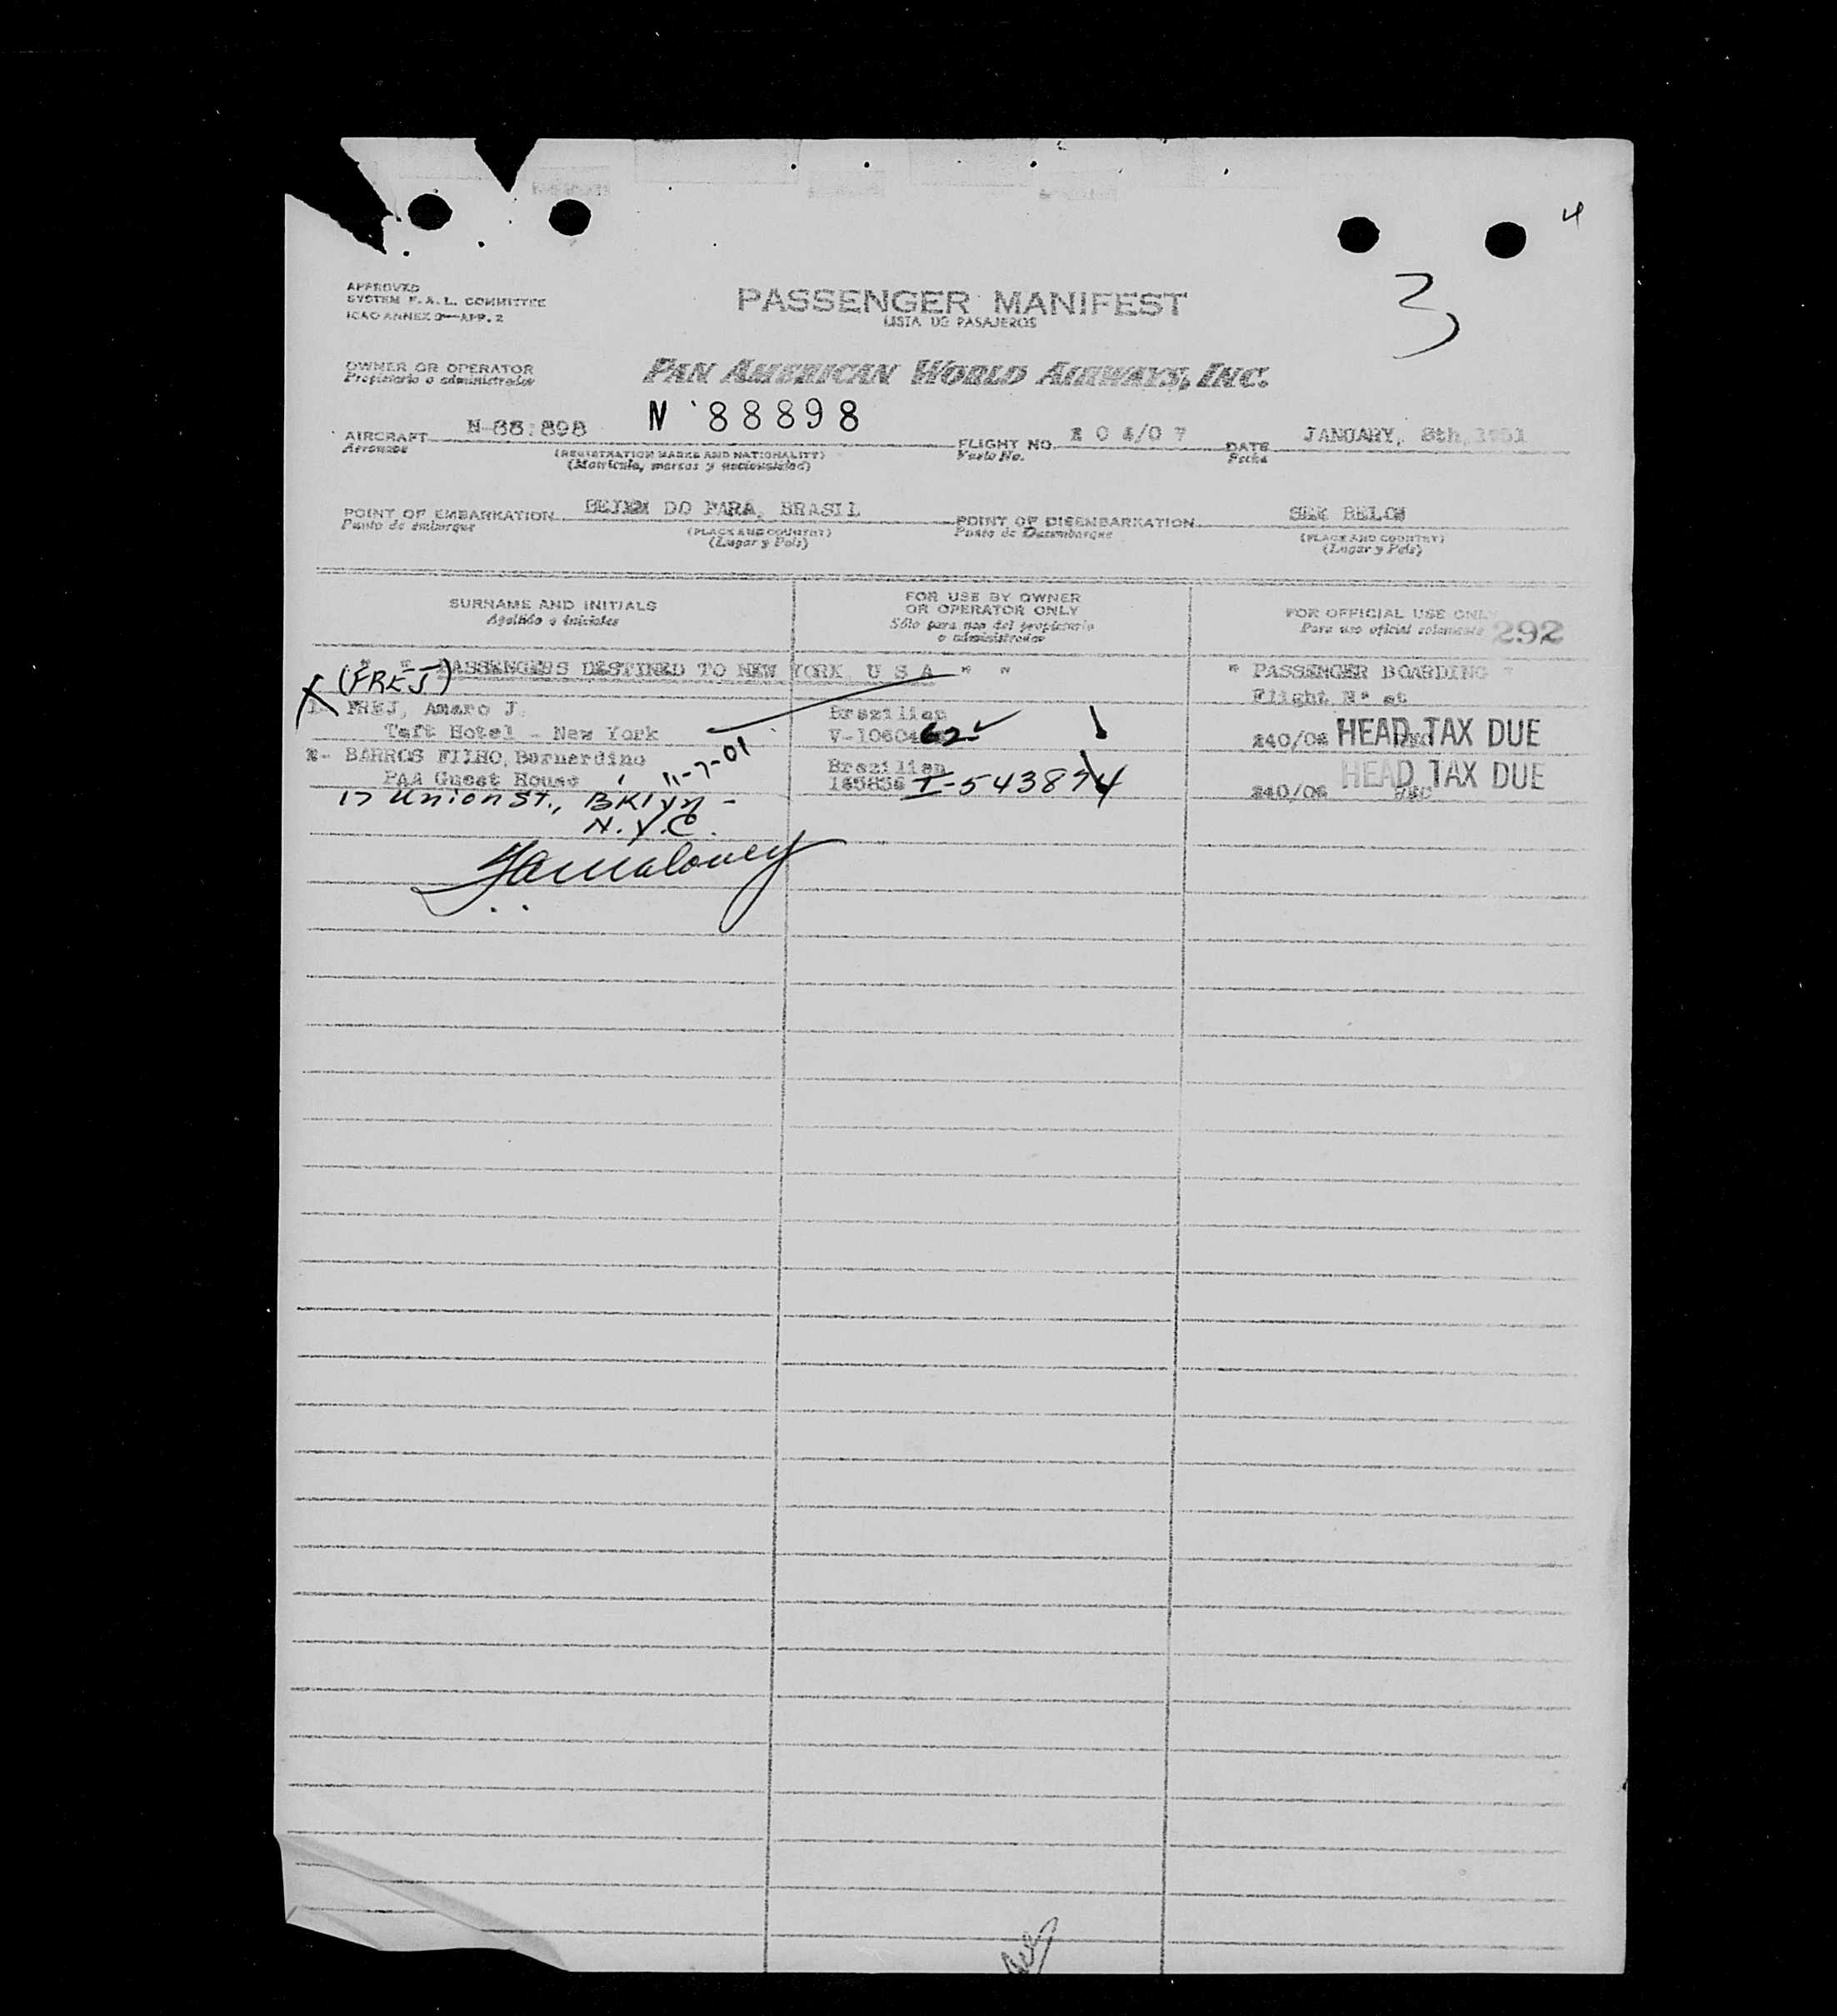 4
3
APPROVED
SYSTEM F. A. L. COMMITTEE
ICAO ANNEX 9—APP. 2
PASSENGER MANIFEST
LISTA DE PASAJEROS
OWNER OR OPERATOR
Propietario o administrador
PAN AMERICAN WORLD AIRWAYS, INC.
AIRCRAFT N-88:898 N 88898 FLIGHT NO. 204/07 DATE JANUARY, 8th, 1951
Aeronave (REGISTRATION MARKS AND NATIONALITY) Vuelo No. Fecha
(Matrícula, marcas y nacionalidad)
POINT OF EMBARKATION BELEM DO PARA, BRASIL POINT OF DISEMBARKATION SEE BELOW
Punto de embarque (PLACE AND COUNTRY) Punto de Desembarque (PLACE AND COUNTRY)
(Lugar y País) (Lugar y País)
SURNAME AND INITIALS
Apellido e iniciales
FOR USE BY OWNER
OR OPERATOR ONLY
Sólo para uso del propietario
o administrador
FOR OFFICIAL USE ONLY
Para uso oficial solamente 292
" " PASSENGERS DESTINED TO NEW YORK U S A " " " PASSENGER BOARDING "
(FREJ) Flight Nº at
X 1- FREJ, Amaro J. Brazilian
Taft Hotel - New York V-1060462 240/06 HEAD TAX DUE
2- BARROS FILHO, Bernardino 11-7-01 Brazilian
PAA Guest House I-543874 240/06 HEAD TAX DUE
17 Union St., Bklyn -
N.Y.C.